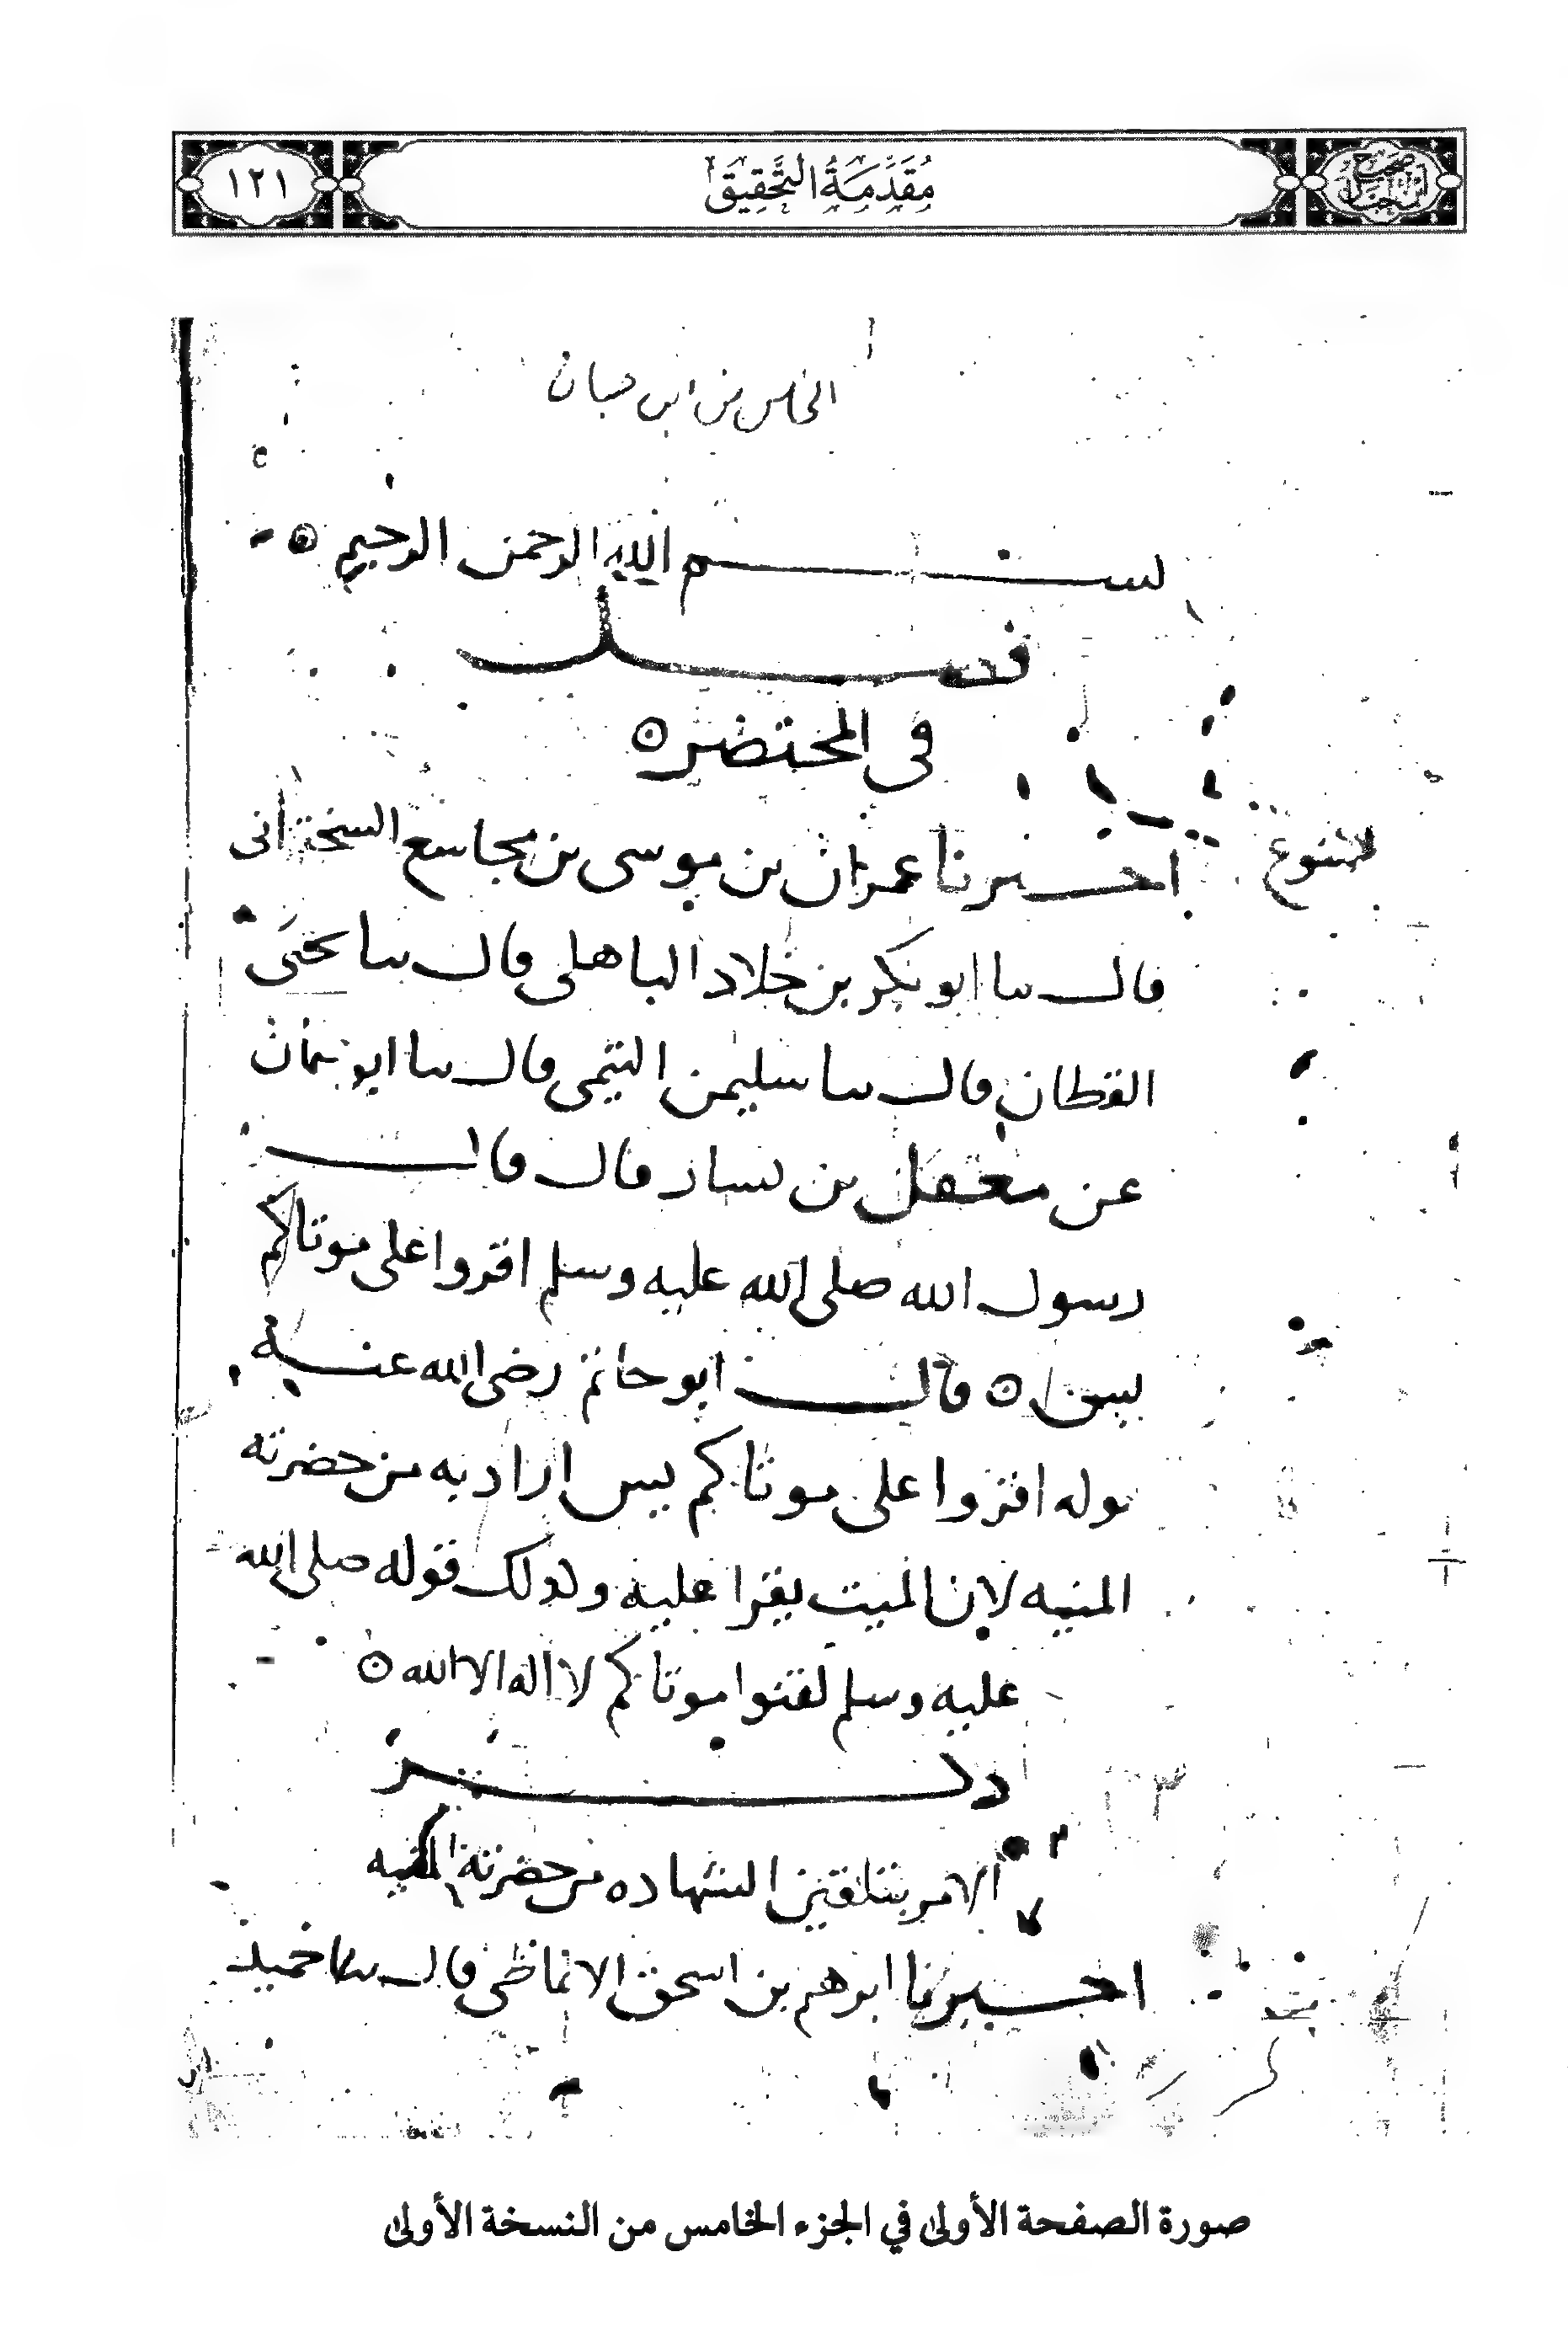 صحيح ابن حبان
مُقَدِّمَةُ التَّحْقِيقَ
١٢١
الخامس من ابن حبان
بسم الله الرحمن الرحيم
فصل
في المحتضر
اخبرنا عمران بن موسى بن مجاشع السختياني
قال سا ابو بكر بن خلاد الباهلي قال سا يحيى
القطان قال سا سليمن التيمي قال سا ابو عثمان
عن معقل بن يسار قال قال
رسول الله صلى الله عليه وسلم اقروا على موتاكم
يس قال ابو حاتم رضي الله عنه
قوله اقروا على موتاكم يس اراد به من حضرته
المنيه لان الميت يقرا عليه ولذلك قوله صلى الله
عليه وسلم لقنوا موتاكم لا اله الا الله
ذكر
الامر بتلقين الشهاده من حضرته المنيه
اخبرنا ابرهيم بن اسحق الانماطي قال سا حميد
صورة الصفحة الأولى في الجزء الخامس من النسخة الأولى